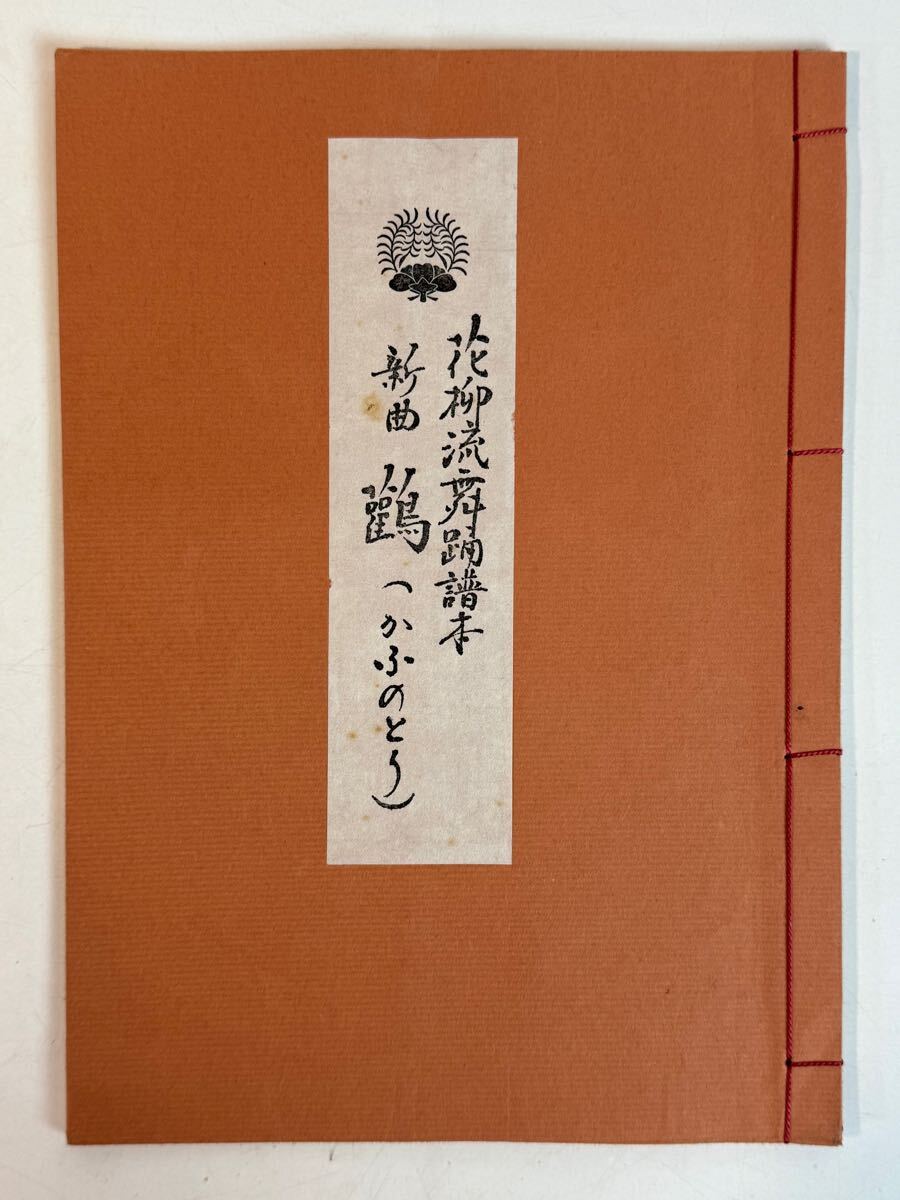 花柳流舞踊譜本
新曲 鸛(かふのとり)